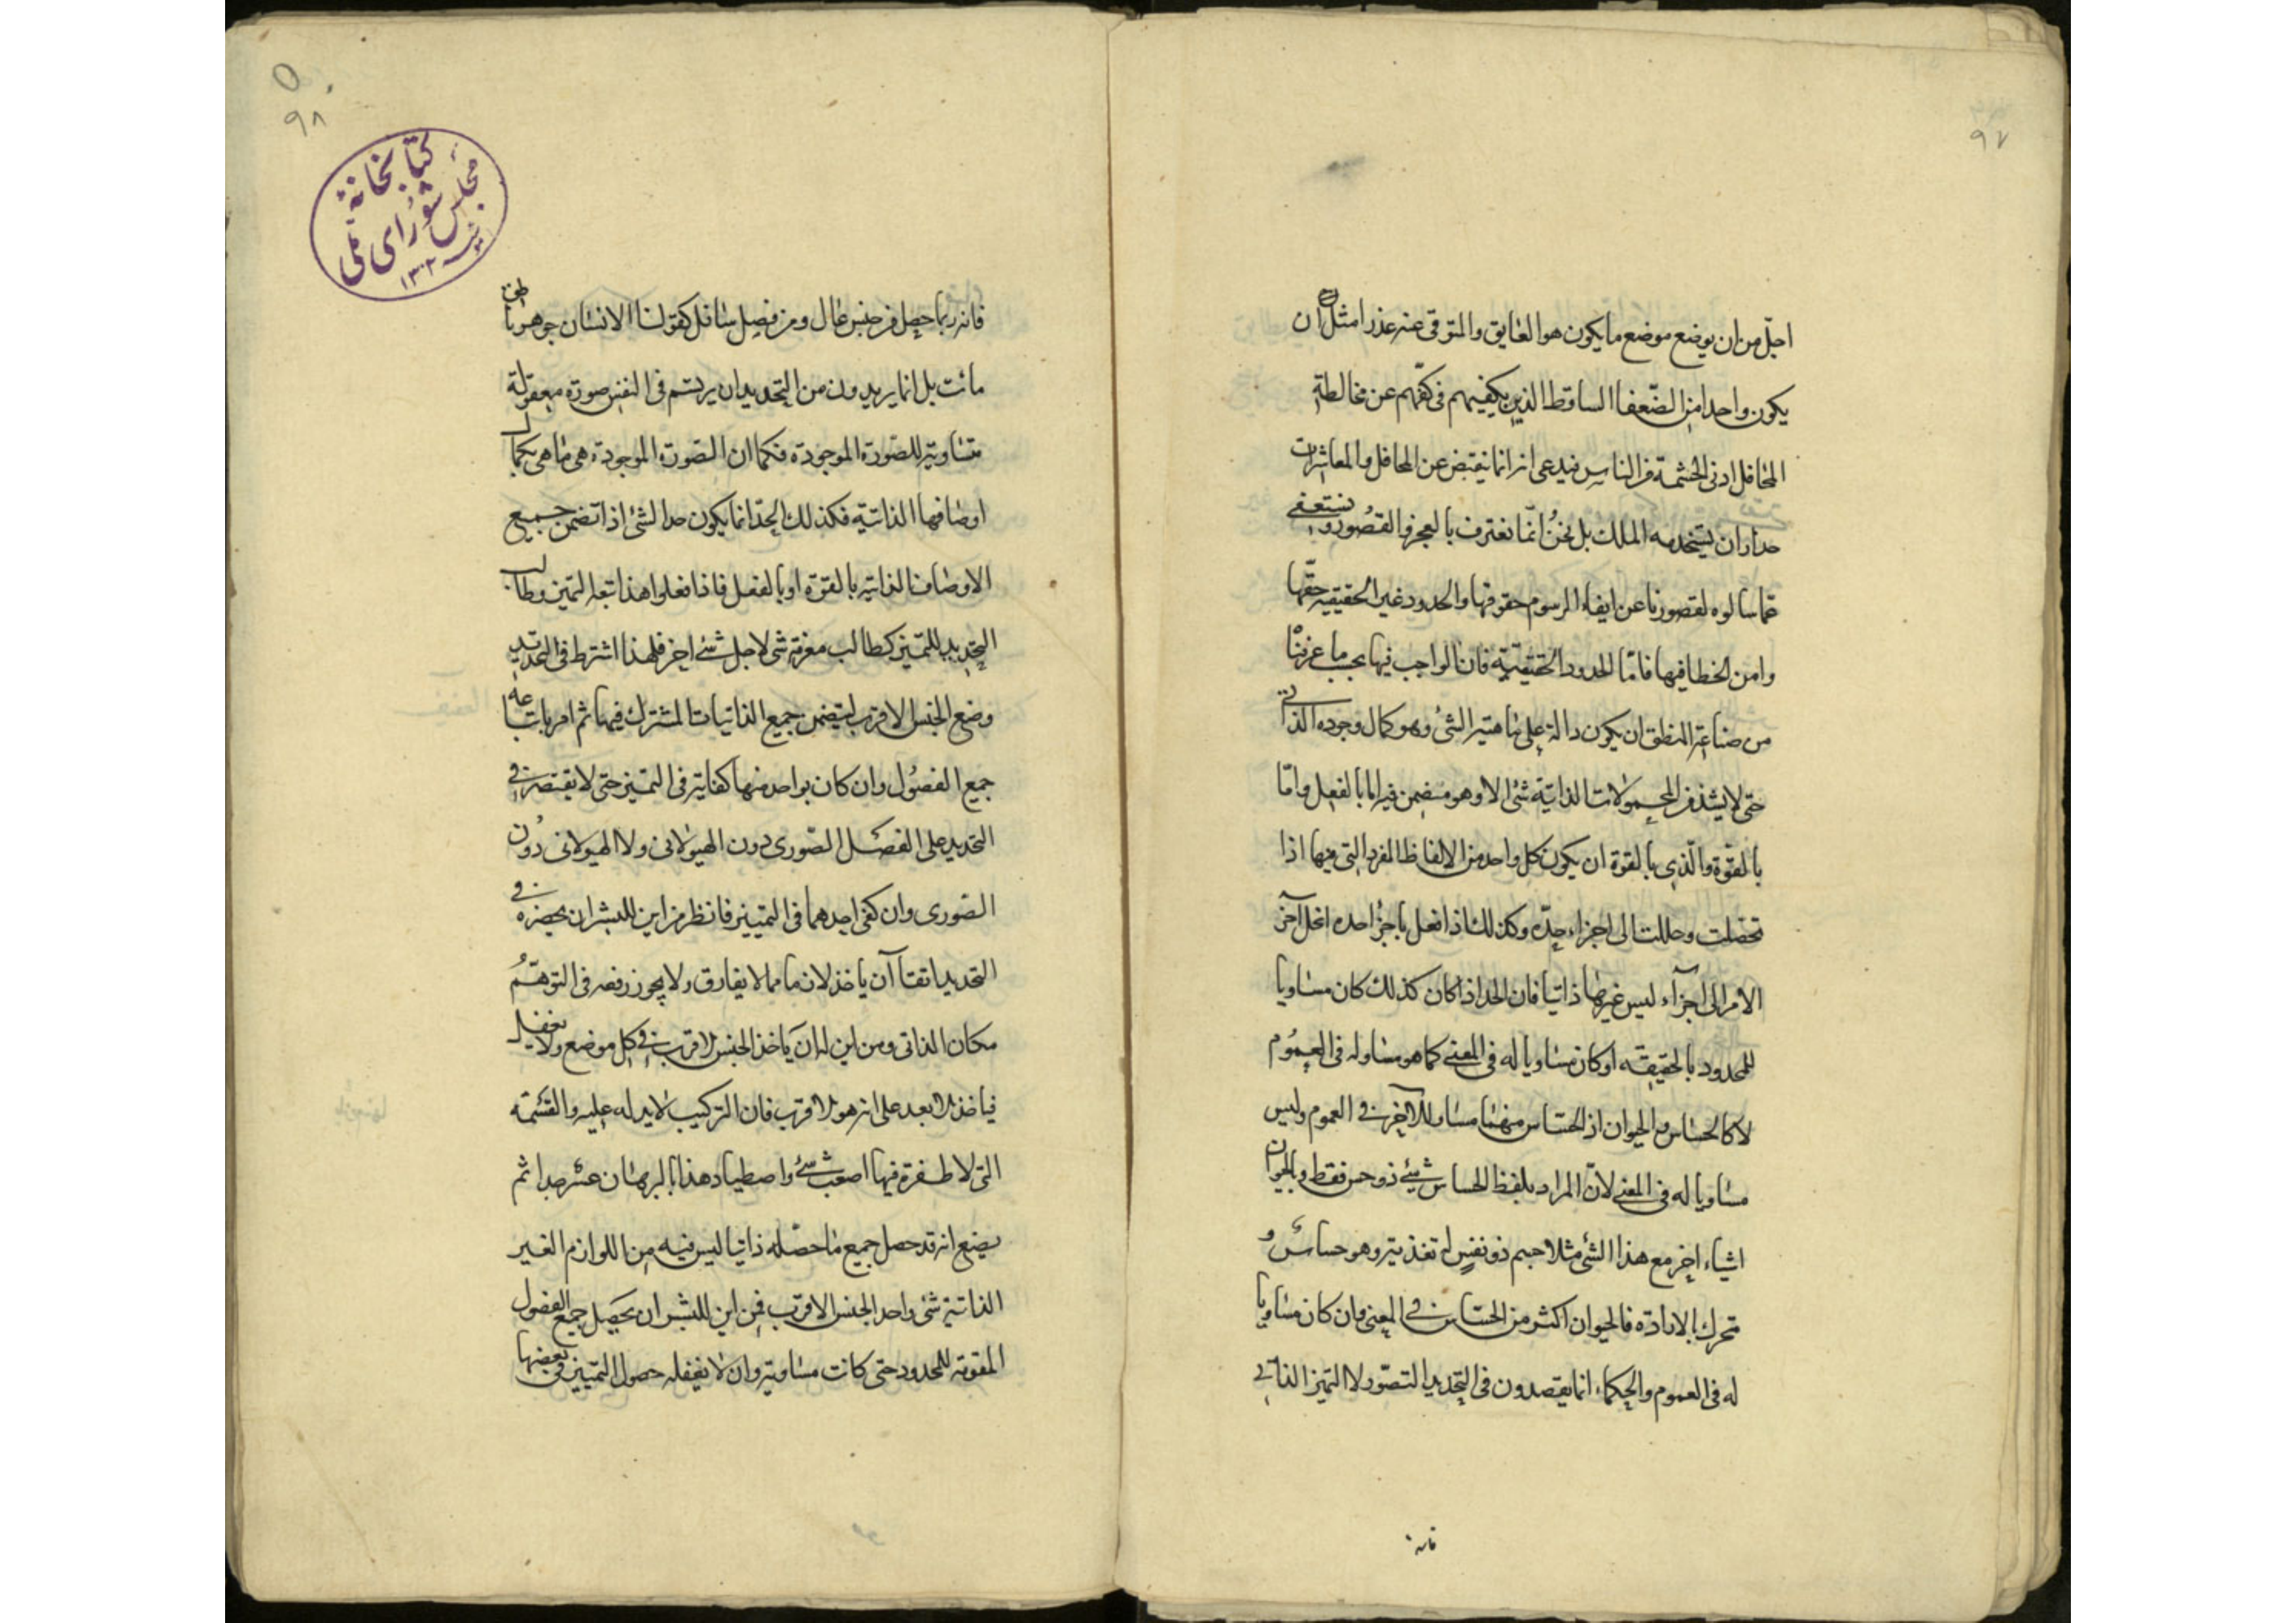 ٩٧
اجلّ من ان يوضع موضع ما يكون هو العايق والمتوقى عنه عذرا مثل ان
يكون واحدا من الضّعفا الساقط الذين يكفيهم فى كفّهم عن مخالطة
المحافل ادنى الحشمة من الناس فيدعى انه انما ينقبض عن المحافل والمعاشرات
حذار ان يستخدمه الملك بل نحنُ انّما نعترف بالعجز والقصُور ونستعفى
عما سالوه لقصورنا عن ايفاء الرسوم حقوقها والحدود غير الحقيقيه حقّها
وامن الخطا فيها فامّا الحدود الحقيقيّة فان الواجب فيها بحسب ما عرفنا
من صناعة المنطق ان يكون دالة على ماهيّة الشئ وهو كمال وجوده الذاتى
حتى لا يشذ من المحمولات الذاتيّة شئ الا وهو متضمن فيه اما بالفعل وامّا
بالقوّة والّذى بالقوة ان يكون كل واحد من الالفاظ المفردة التى فيها اذا
تحصّلت وحللت الى اجزاء حدّه وكذلك اذا فعل باجزُا حده انحل آخر
الامر الى اجزآء ليس غيرها ذاتيا فان الحد اذا كان كذلك كان مساويا
للمحدود بالحقيقه او كان مساويا له فى المعنى كما هو مساو له فى العمُوم
لا كالحساس والحيوان اذ الحساس منهما مساو للآخر فى العموم وليس
مساويا له فى المعنى لانّ المراد بلفظ الحساس شئ ذو حس فقط وبالحيوان
اشياء اخر مع هذا الشئ مثلا جسم ذو نفسٍ له تغذية وهو حساس و
متحرك بالاراده فالحيوان اكثر من الحساس فى المعنى وان كان مساويا
له فى العموم والحكماء انما يقصدون فى التحديد التصوّر لا التميز الذاتى
فانه
٩٨
كتابخانهٔ
مجلس شورای ملی
١٣٠٢
فانه ربما حصل من جنس عال ومن فصل سافل كقولنا الانسان جوهر ناطق
مائت بل انما يريدون من التحديد ان يرتسم فى النفس صورة معقولة
متساوية للصّورة الموجودة فكما ان الصّورة الموجودة هى ما هى بكمال
اوصافها الذاتيّه فكذلك الحدّ انما يكون حد الشئ اذا تضمن جميع
الاوصاف الذاتيه بالقوة او بالفعل فاذا فعلوا هذا تبعه التميز وطالب
التحديد للتميز كطالب معرفة شئ لاجل شئ اخر فلهذا اشترط فى التحديد
وضع الجنس الاقرب ليتضمن جميع الذاتيات المشترك فيها ثم امر باتباعه
جميع الفصُول وان كان بواحد منها كفاية فى التميز حتى لا يقتصر فى
التحديد على الفصل الصّورى دون الهيولانى ولا الهيولانى دوُن
الصورى وان كفى احدهما فى التمييز فانظر من اين للبشر ان يحضره فى
التحديد اتقاآن ياخذ لازما مما لا يفارق ولا يجوز رفعه فى التوهّمُ
مكان الذاتى ومن اين له ان ياخذ الجنس الاقرب فى كل موضع ولا يغفل
فياخذ الابعد على انه هو الاقرب فان التركيب لا يدله عليه والقسمة
التى لا طفرة فيها اصعب شئ واصطياد هذا بالبرهان عسُر جدا ثم
يضع انه قد حصل جميع ما حصّله ذاتيا ليس فيه من اللوازم الغير
الذاتية شئ واحد الجنس الاقرب فمن اين للبشر ان يحصيل جميع الفصول
المقومة للمحدود حتى كانت مساوية وان لا يغفله حصول التمييز فى بعضها